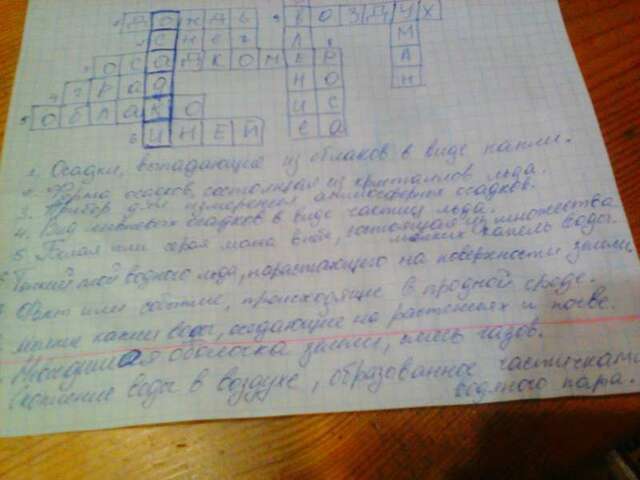 1 ДОЖДЬ 9 ВОЗДУХ
2 СНЕГ
3 ОСАДКОМЕР
4 ГРАД
5 ОБЛАКО
6 ИНЕЙ
ЯВЛЕНИЕ
РОСА
ТУМАН
1. Осадки, выпадающие из облаков в виде капли.
2. Форма осадков, состоящая из кристаллов льда.
3. Прибор для измерения атмосферных осадков.
4. Вид ливневых осадков в виде частиц льда.
5. Белая или серая масса в небе, состоящая из множества
мелких капель воды.
6. Тонкий слой водного льда, нарастающего на поверхности земли.
7. Факт или событие, происходящие в продной среде.
мелкие капли воды, оседающие на растениях и почве.
оболочка земли, смесь газов.
Скопление воды в воздухе, образованное частичками
водяного пара.